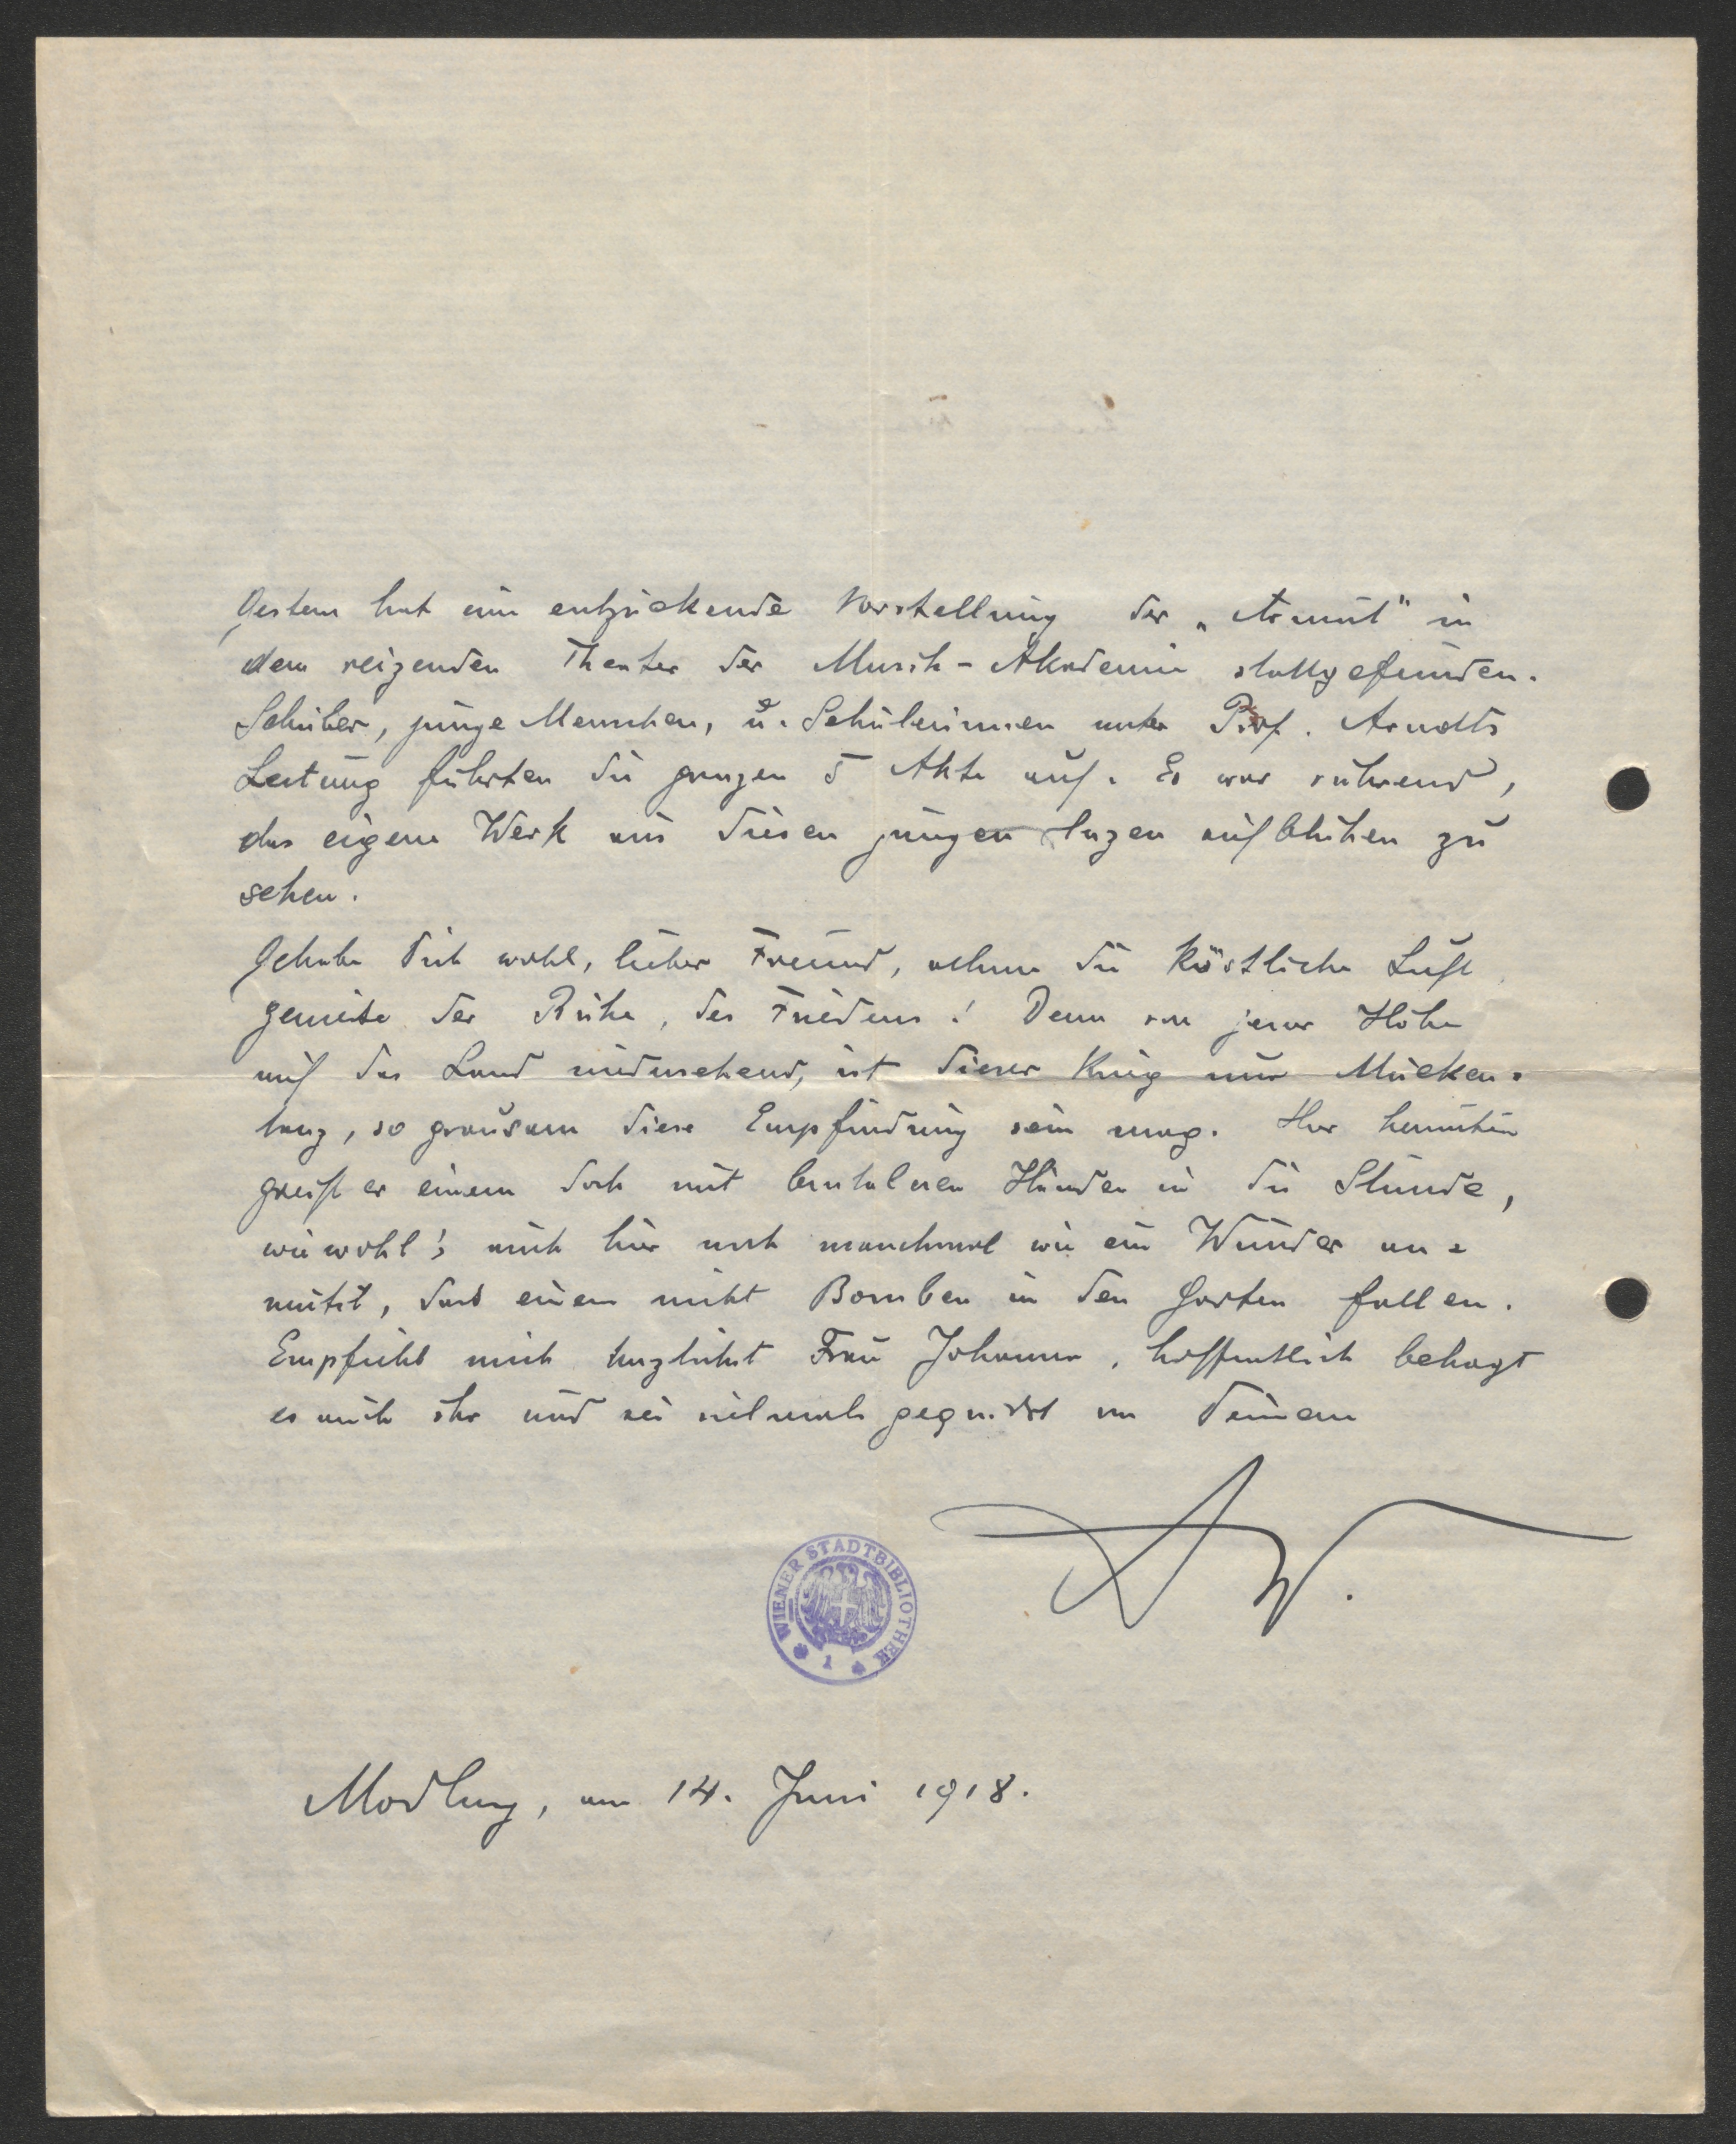 Gestern hat eine entzückende Vorstellung der „Armut" in
dem reizenden Theater der Musik-Akademie stattgefunden.
Schüler, junge Menschen, u. Schülerinnen unter Prof. Arndts
Leitung führten die ganzen 5 Akte auf. Es war rührend,
das eigene Werk aus diesen jungen aufblühen zu
sehen.
Gehabe Dich wohl, lieber Freund, atme die köstliche Luft
geniesse der Ruhe, des Friedens! Denn von jener Höhe
auf das Land niedersehend, ist dieser Krieg nur Mücken=
tanz, so grausam diese Empfindung sein mag. Hier herunten
greift er einem doch mit brutaleren Händen in die Stunde,
wiewohl's auch hier noch manchmal wie ein Wunder an=
mutet, dass einem nicht Bomben in den Garten fallen.
Empfiehl mich herzlichst Frau Johanna, hoffentlich behagt
es auch ihr und sei vielmals gegrüsst von Deinem
AW.
WIENER STADTBIBLIOTHEK
1
Mödling, am 14. Juni 1918.